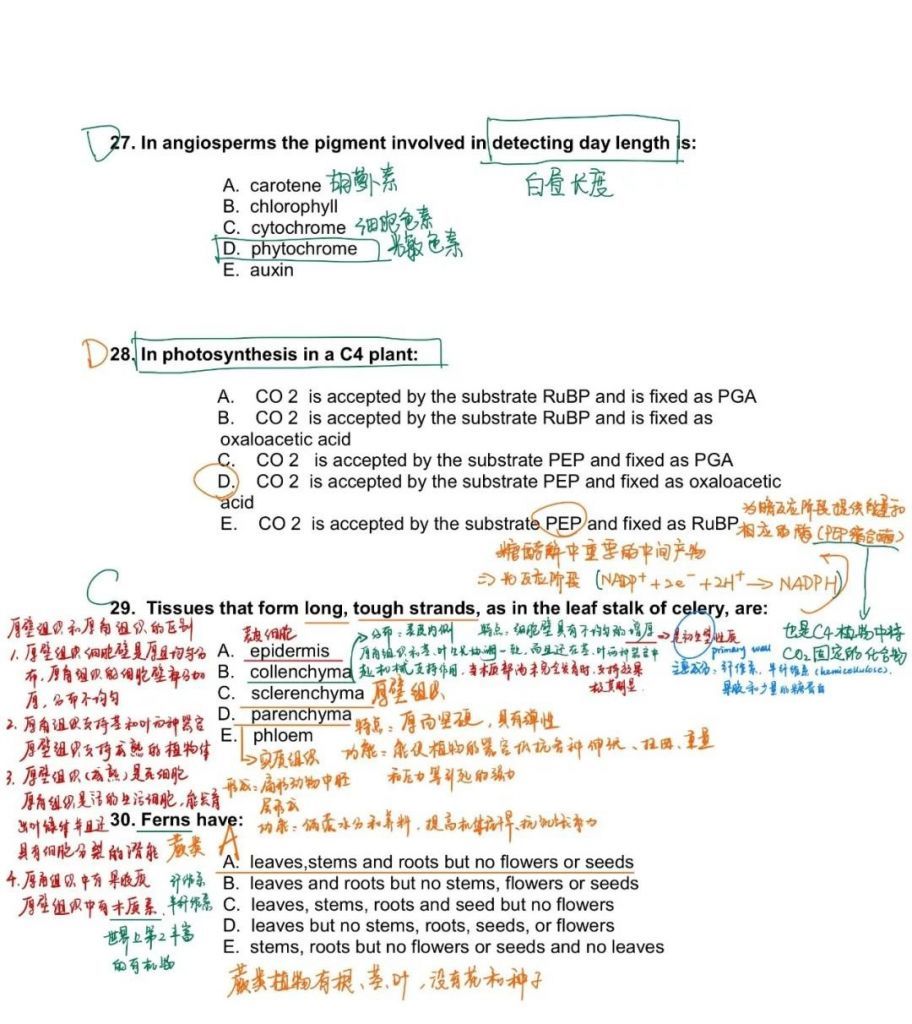 D 27. In angiosperms the pigment involved in detecting day length is:
白昼长度
A. carotene 胡萝卜素
B. chlorophyll
C. cytochrome 细胞色素
D. phytochrome 光敏色素
E. auxin
D 28. In photosynthesis in a C4 plant:
A. CO 2 is accepted by the substrate RuBP and is fixed as PGA
B. CO 2 is accepted by the substrate RuBP and is fixed as
oxaloacetic acid
C. CO 2 is accepted by the substrate PEP and fixed as PGA
D. CO 2 is accepted by the substrate PEP and fixed as oxaloacetic
acid
E. CO 2 is accepted by the substrate PEP and fixed as RuBP
为暗反应阶段提供能量和
相应的酶(PEP羧合酶)
糖酵解中重要的中间产物
=> 光反应阶段 (NADP⁺ + 2e⁻ + 2H⁺ → NADPH)
也是C4植物中将
CO₂固定的化合物
C
29. Tissues that form long, tough strands, as in the leaf stalk of celery, are:
A. epidermis 表皮细胞
B. collenchyma
C. sclerenchyma 厚壁组织
D. parenchyma
E. phloem
分布:表皮内侧
特点:细胞壁具有不均匀的增厚
primary wall
(hemicellulose)
特点:厚而坚硬,具有弹性
功能:能使植物的器官
实质组织
厚壁组织和厚角组织的区别
1. 厚壁组织细胞壁是厚且均匀分
布,厚角组织的细胞壁部分加
厚,分布不均匀
2. 厚角组织支持茎和叶两种器官
厚壁组织支持成熟的植物体
3. 厚壁组织(成熟)是死细胞
厚角组织是活的生活细胞,能长有
叶绿体并且还
具有细胞分裂的潜能
4. 厚角组织中有果胶质 纤维素
厚壁组织中有木质素 半纤维素
世界上第2丰富
的有机物
30. Ferns have:
蕨类
A
A. leaves,stems and roots but no flowers or seeds
B. leaves and roots but no stems, flowers or seeds
C. leaves, stems, roots and seed but no flowers
D. leaves but no stems, roots, seeds, or flowers
E. stems, roots but no flowers or seeds and no leaves
蕨类植物有根、茎、叶,没有花和种子